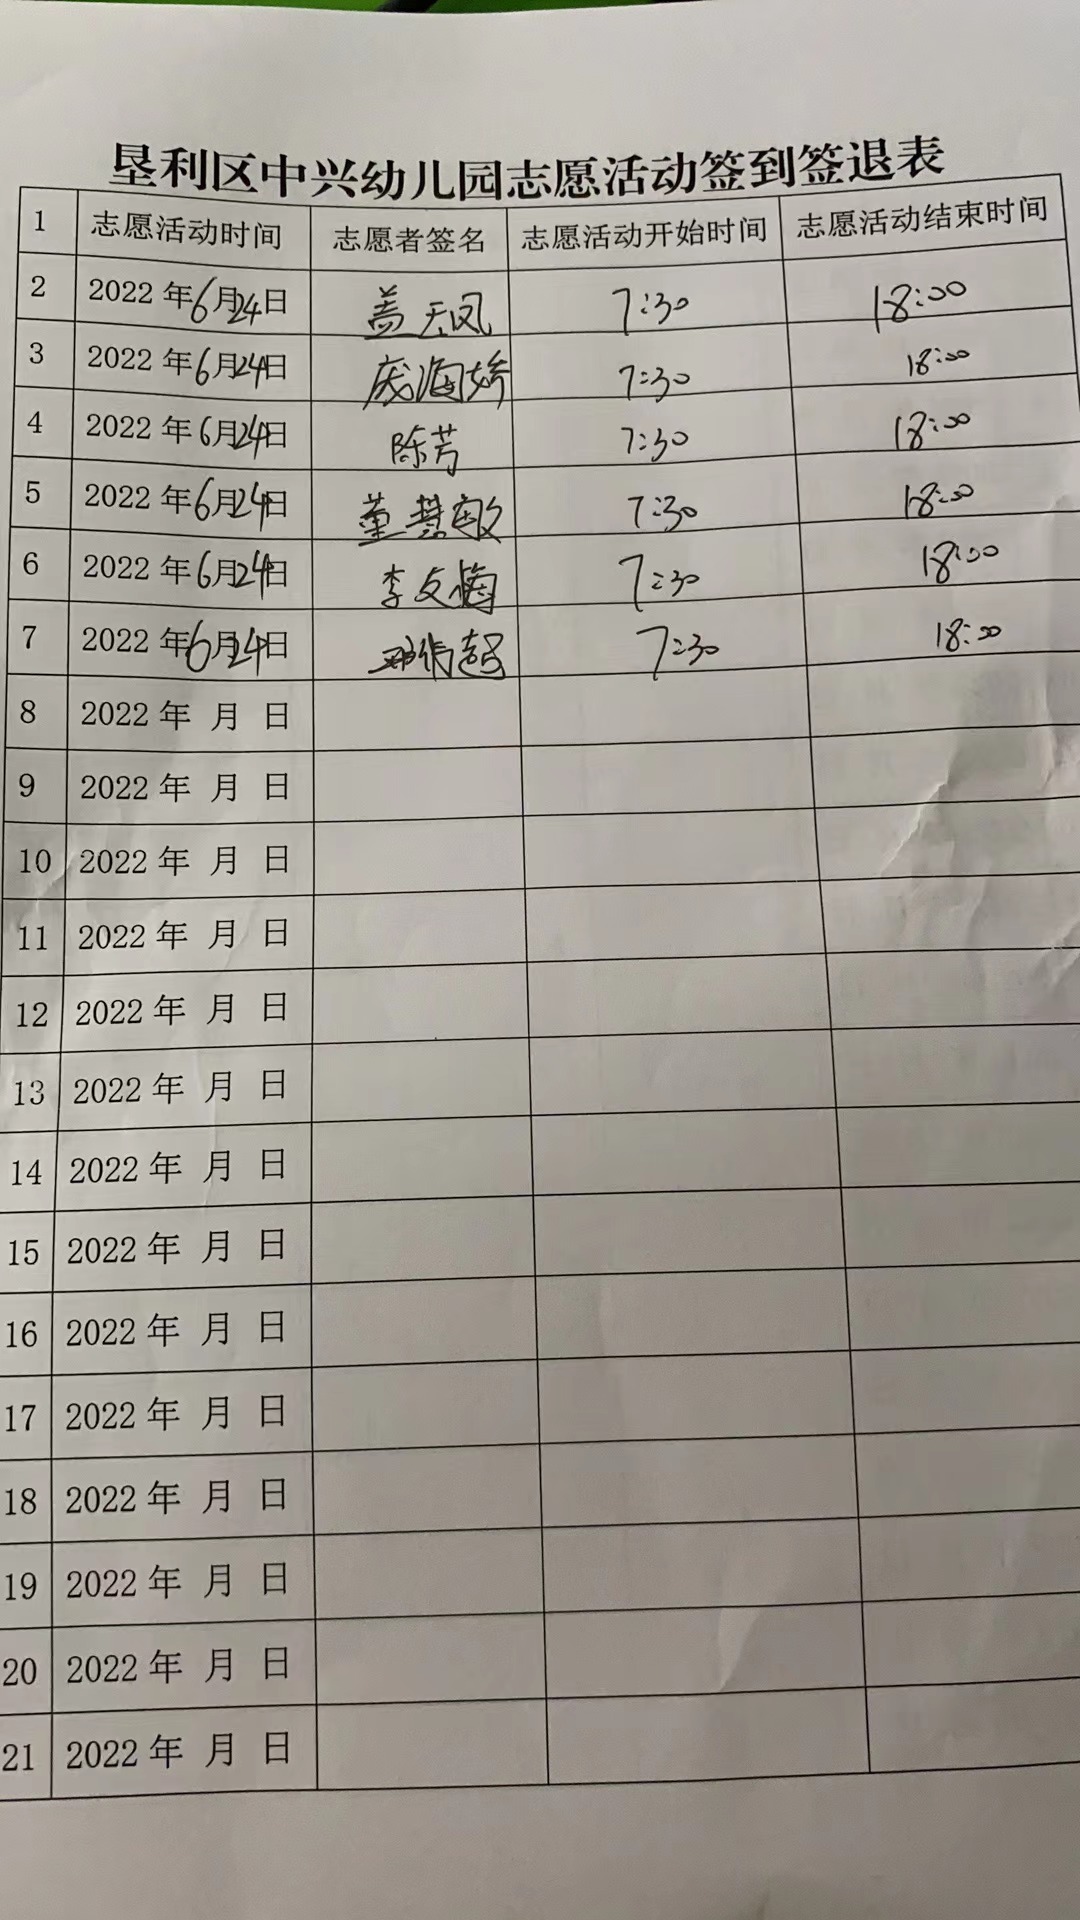 垦利区中兴幼儿园志愿活动签到签退表
1 志愿活动时间 志愿者签名 志愿活动开始时间 志愿活动结束时间
2 2022年6月24日 盖天凤 7:30 18:00
3 2022年6月24日 庞海娇 7:30 18:00
4 2022年6月24日 陈芳 7:30 18:00
5 2022年6月24日 董慧敏 7:30 18:00
6 2022年6月24日 李友梅 7:30 18:00
7 2022年6月24日 7:30 18:00
8 2022年 月 日
9 2022年 月 日
10 2022年 月 日
11 2022年 月 日
12 2022年 月 日
13 2022年 月 日
14 2022年 月 日
15 2022年 月 日
16 2022年 月 日
17 2022年 月 日
18 2022年 月 日
19 2022年 月 日
20 2022年 月 日
21 2022年 月 日